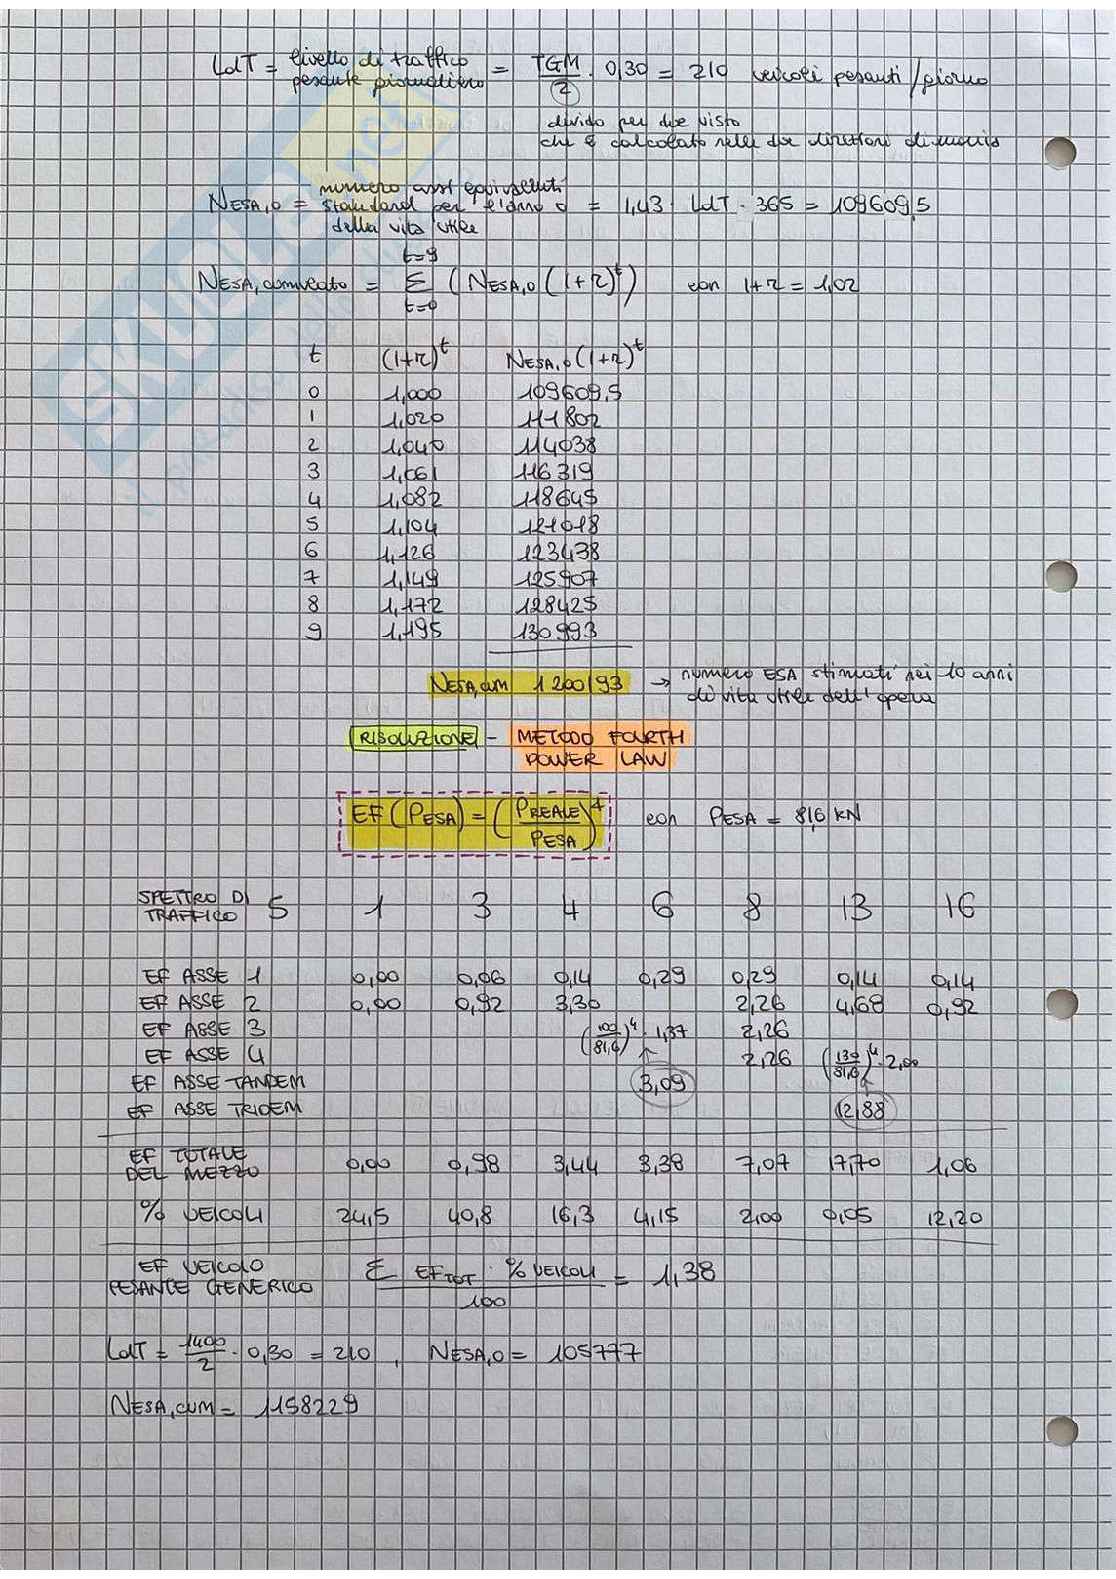 LdT = livello di traffico pesante giornaliero = TGM/2 · 0,30 = 210 veicoli pesanti/giorno
divido per due visto
che è calcolato nelle due direzioni di marcia
NESA,0 = numero assi equivalenti standard per l'anno 0 della vita utile = 1,43 · LdT · 365 = 109609,5
NESA,cumulato = Σ (t=0, t=9) (NESA,0 (1+r)^t) con 1+r = 1,02
t (1+r)^t NESA,0 (1+r)^t
0 1,000 109609,5
1 1,020 111802
2 1,040 114038
3 1,061 116319
4 1,082 118645
5 1,104 121018
6 1,126 123438
7 1,149 125907
8 1,172 128425
9 1,195 130993
NESA,cum 1200193 → numero ESA stimati nei 10 anni
di vita utile dell'opera
RISOLUZIONE - METODO FOURTH
POWER LAW
EF (PESA) = (PREALE/PESA)^4 con PESA = 81,6 KN
SPETTRO DI TRAFFICO 5 1 3 4 6 8 13 16
EF ASSE 1 0,00 0,06 0,14 0,29 0,29 0,14 0,14
EF ASSE 2 0,00 0,92 3,30 2,26 4,68 0,92
EF ASSE 3 (100/81,6)^4 · 1,37 2,26
EF ASSE 4 2,26 (130/81,6)^4 · 2,00
EF ASSE TANDEM 3,09
EF ASSE TRIDEM 12,88
EF TOTALE DEL MEZZO 0,00 0,98 3,44 3,38 7,07 17,70 1,06
% VEICOLI 24,5 40,8 16,3 4,15 2,00 0,05 12,20
EF VEICOLO PESANTE GENERICO Σ EFTOT · % VEICOLI / 100 = 1,38
LdT = 1400/2 · 0,30 = 210, NESA,0 = 105777
NESA,cum = 1158229